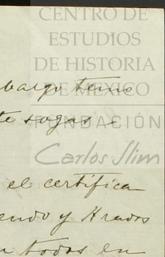 CENTRO DE
ESTUDIOS
DE HISTORIA
DE MÉXICO
FUNDACIÓN
Carlos Slim
bargo tene
te sogas -
el certifica
endo y Arados
n todos en